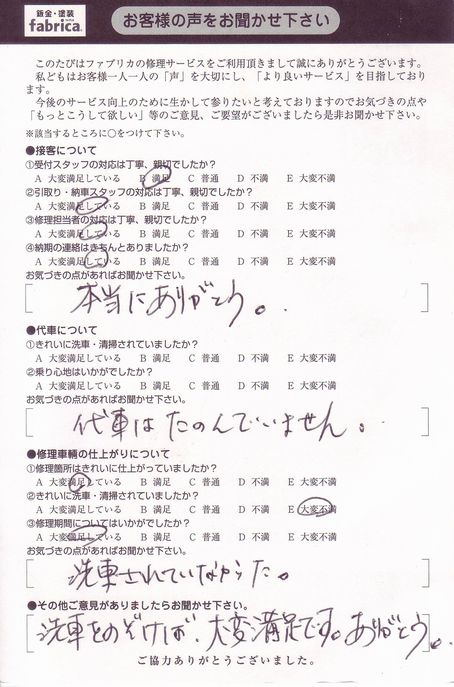 鈑金・塗装
fabrica.
お客様の声をお聞かせ下さい
このたびはファブリカの修理サービスをご利用頂きまして誠にありがとうございます。
私どもはお客様一人一人の「声」を大切にし、「より良いサービス」を目指しており
ます。
今後のサービス向上のために生かして参りたいと考えておりますのでお気づきの点や
「もっとこうして欲しい」等のご意見、ご要望がございましたら是非お聞かせ下さい。
※該当するところに○をつけて下さい。
●接客について
①受付スタッフの対応は丁寧、親切でしたか?
A 大変満足している B 満足 C 普通 D 不満 E 大変不満
②引取り・納車スタッフの対応は丁寧、親切でしたか?
A 大変満足している B 満足 C 普通 D 不満 E 大変不満
③修理担当者の対応は丁寧、親切でしたか?
A 大変満足している B 満足 C 普通 D 不満 E 大変不満
④納期の連絡はきちんとありましたか?
A 大変満足している B 満足 C 普通 D 不満 E 大変不満
お気づきの点があればお聞かせ下さい。
本当にありがとう。
●代車について
①きれいに洗車・清掃されていましたか?
A 大変満足している B 満足 C 普通 D 不満 E 大変不満
②乗り心地はいかがでしたか?
A 大変満足している B 満足 C 普通 D 不満 E 大変不満
お気づきの点があればお聞かせ下さい。
代車はたのんでいません。
●修理車輌の仕上がりについて
①修理箇所はきれいに仕上がっていましたか?
A 大変満足している B 満足 C 普通 D 不満 E 大変不満
②きれいに洗車・清掃されていましたか?
A 大変満足している B 満足 C 普通 D 不満 E 大変不満
③修理期間についてはいかがでしたか?
A 大変満足している B 満足 C 普通 D 不満 E 大変不満
お気づきの点があればお聞かせ下さい。
洗車されていなかった。
●その他ご意見がありましたらお聞かせ下さい。
洗車をのぞけば、大変満足です。ありがとう。
ご協力ありがとうございました。